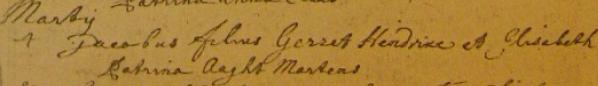 Martij
1 Jacobus filius Gerret Hendrixe et Elisabeth
Catrina Aaght Martens